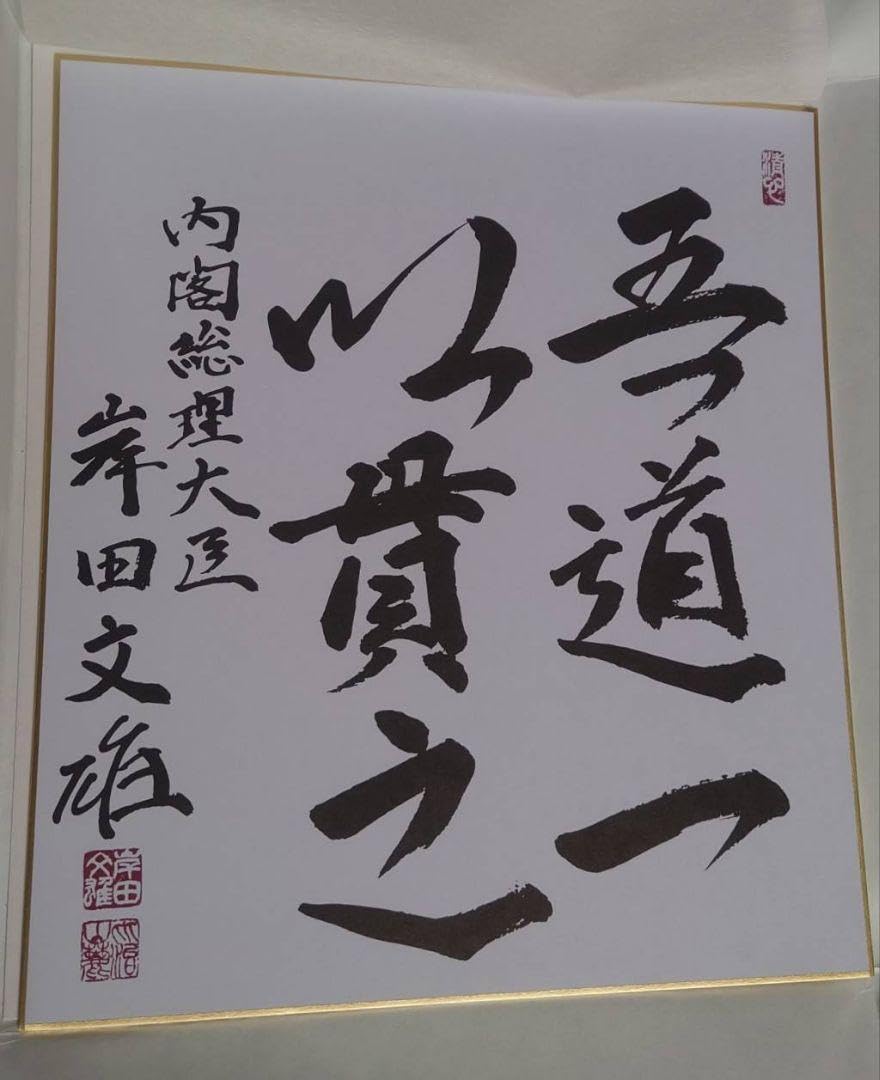 吾道一
以貫之
内閣総理大臣
岸田文雄
岸田
文雄